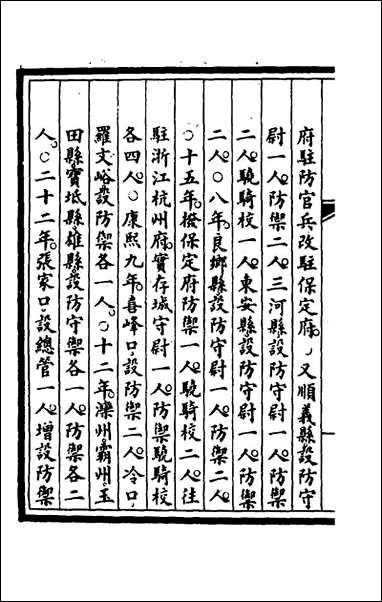 府駐防官兵改駐保定府。又順義縣設防守
尉一人防禦二人三河縣設防守尉一人防禦
二人驍騎校一人東安縣設防守尉一人防禦
二人○八年良鄉縣設防守尉一人防禦二人
○十五年撥保定府防禦一人驍騎校二人往
駐浙江杭州府實存城守尉一人防禦驍騎校
各四人○康熙九年喜峰口設防禦二人冷口
羅文峪設防禦各一人○十二年灤州霸州玉
田縣寶坻縣雄縣設防守禦各一人防禦各二
人○二十二年張家口設總管一人增設防禦